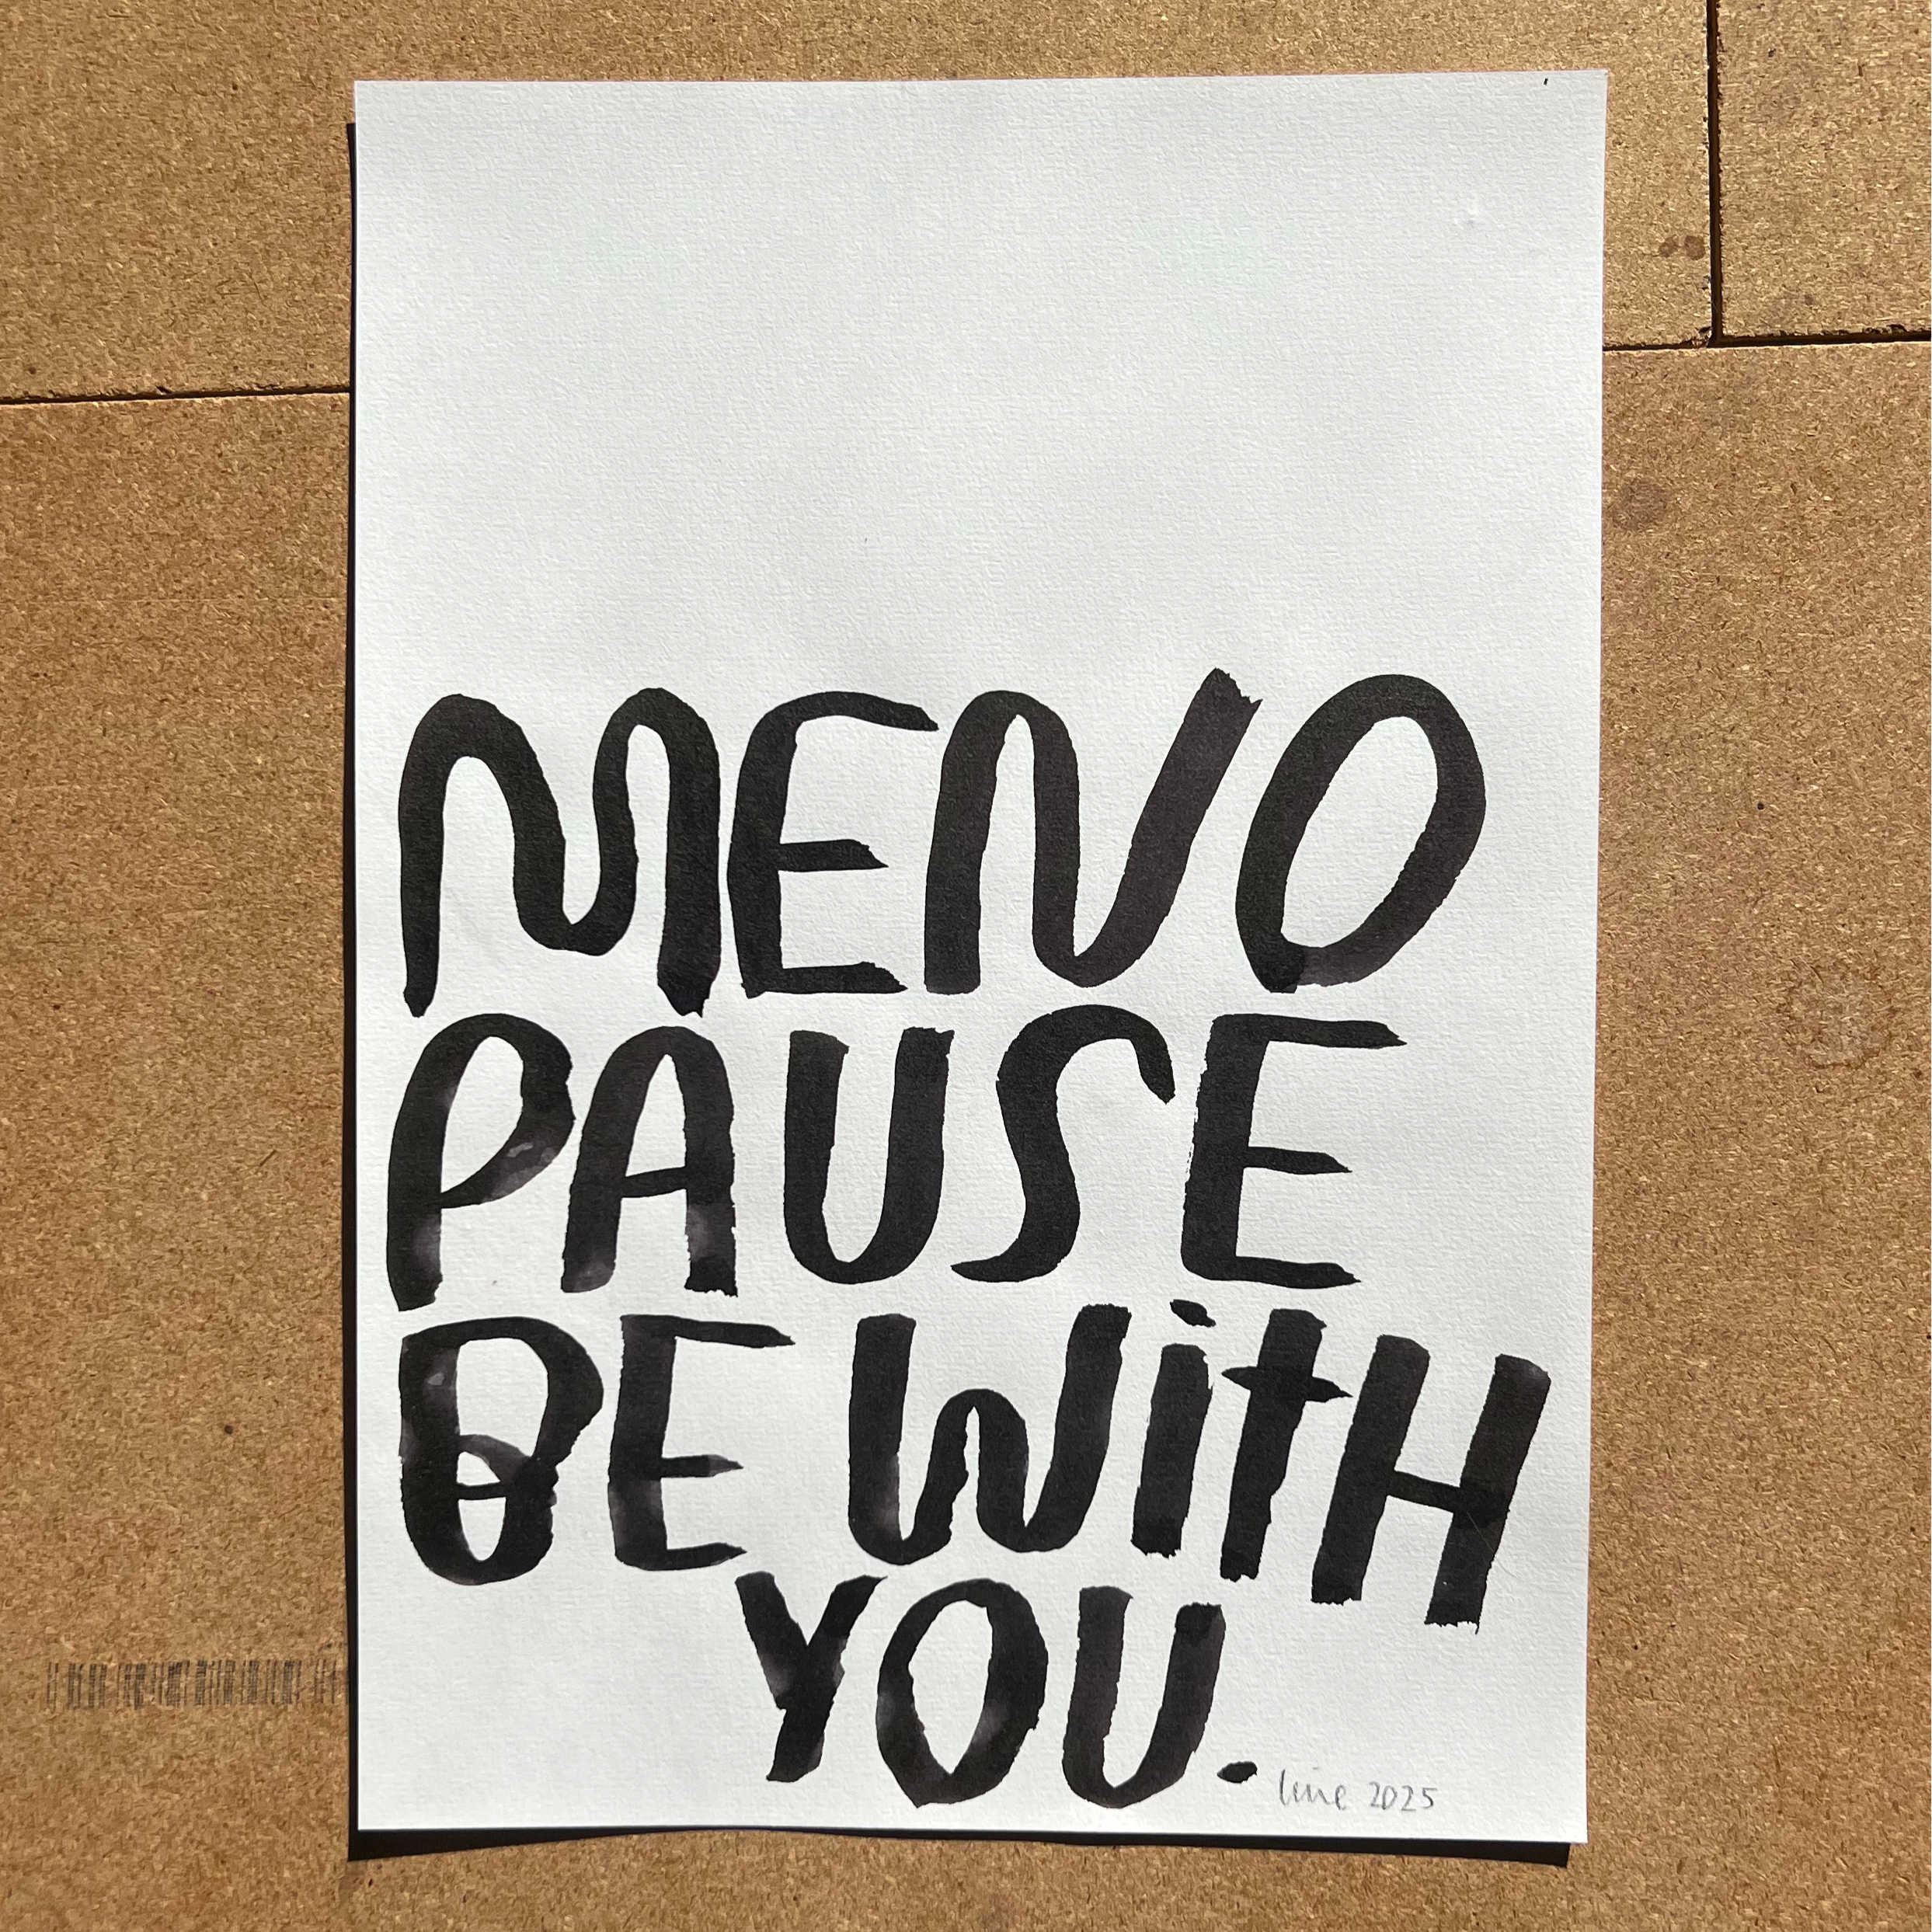 MENO
PAUSE
BE WitH
YOU.
2025